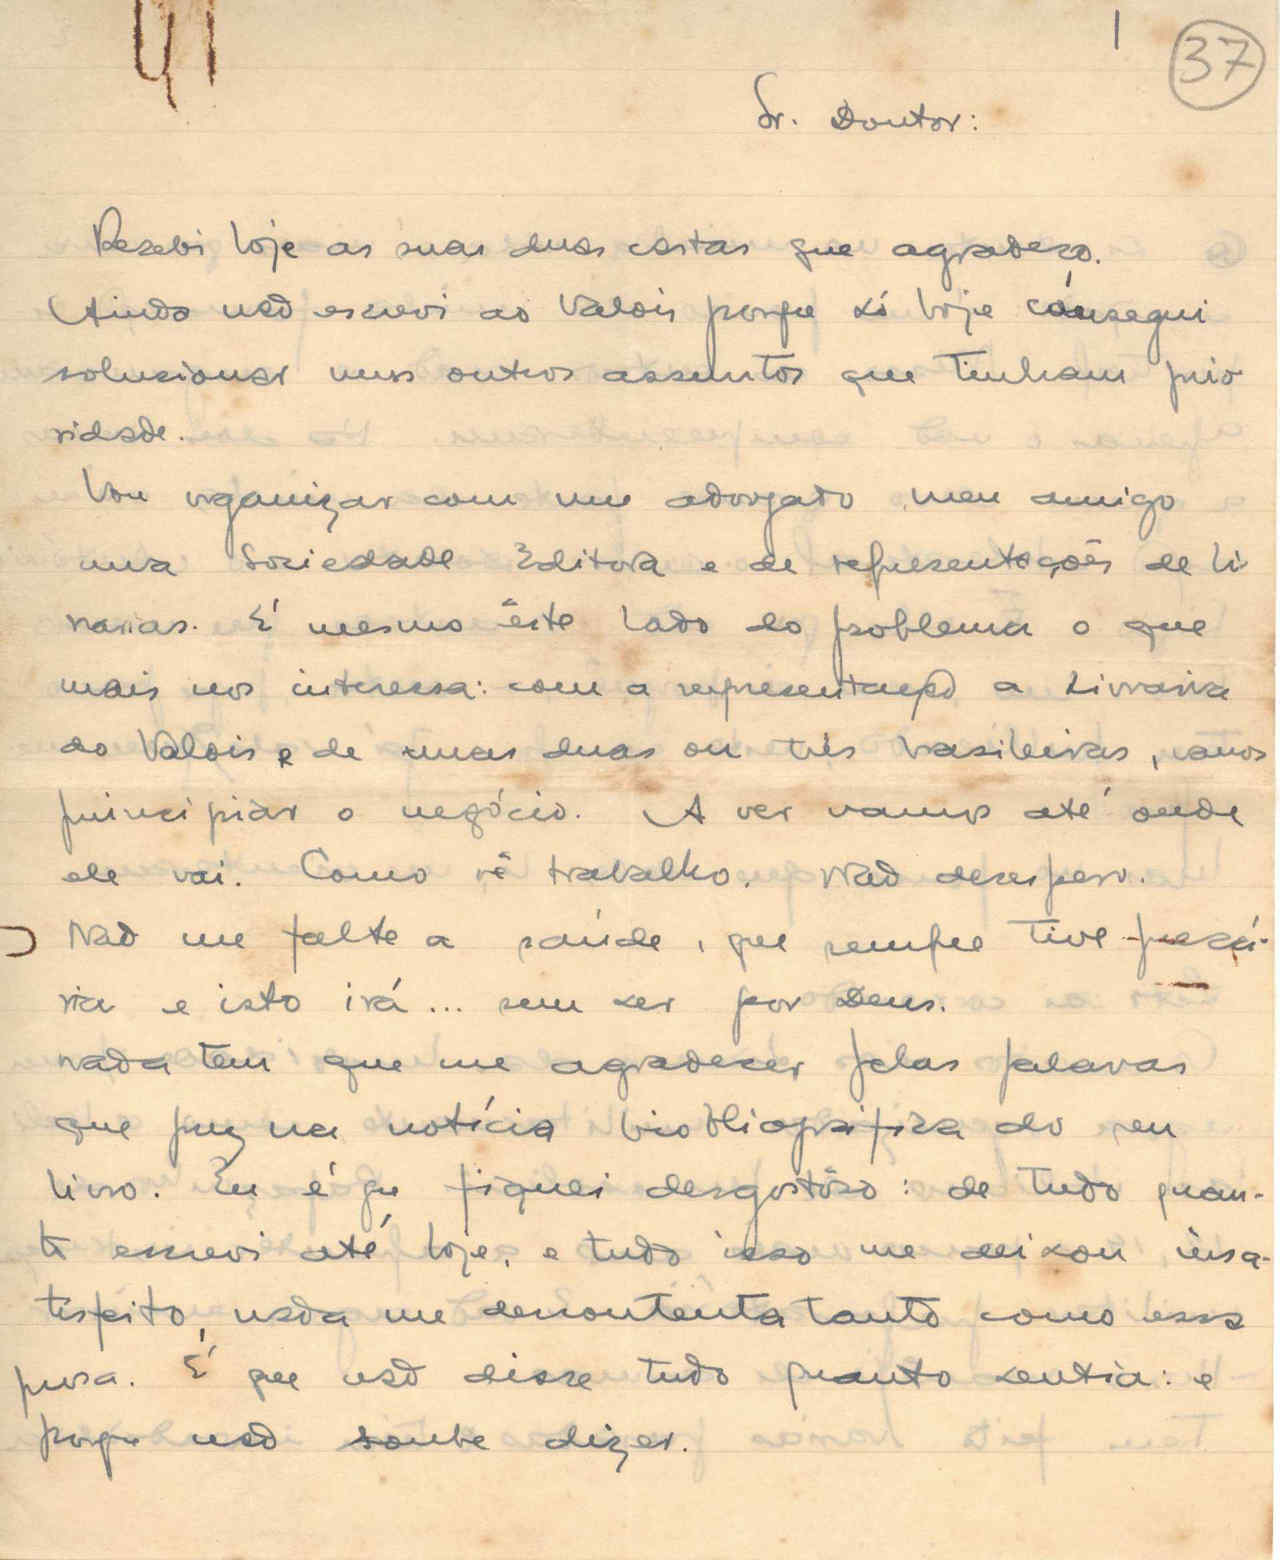 41
1
37
Sr. Doutor:
Recebi hoje as suas duas cartas que agradeço.
Ainda não escrevi ao Valois porque só hoje consegui
solucionar uns outros assuntos que tinham prio
ridade.
Vou organizar com um advogado meu amigo
uma Sociedade Editora e de representações de li
vrarias. É mesmo êste lado do problema o que
mais nos interessa: com a representação a Livraria
do Valois e de umas duas ou três brasileiras, vamos
principiar o negócio. A ver vamos até onde
ele vai. Como vê trabalho. Não desespero.
Não me falte a saúde, que sempre tive precá-
ria e isto irá... sem ser por Deus.
Nada tem que me agradecer pelas palavras
que puz na notícia biobliográfica do seu
livro. Eu é que fiquei desgostôso: de tudo quan-
to escrevi até hoje, e tudo isso me deixou insa-
tisfeito, nada me descontenta tanto como essa
prosa. É que não disse tudo quanto sentia: e
porque não soube dizer.